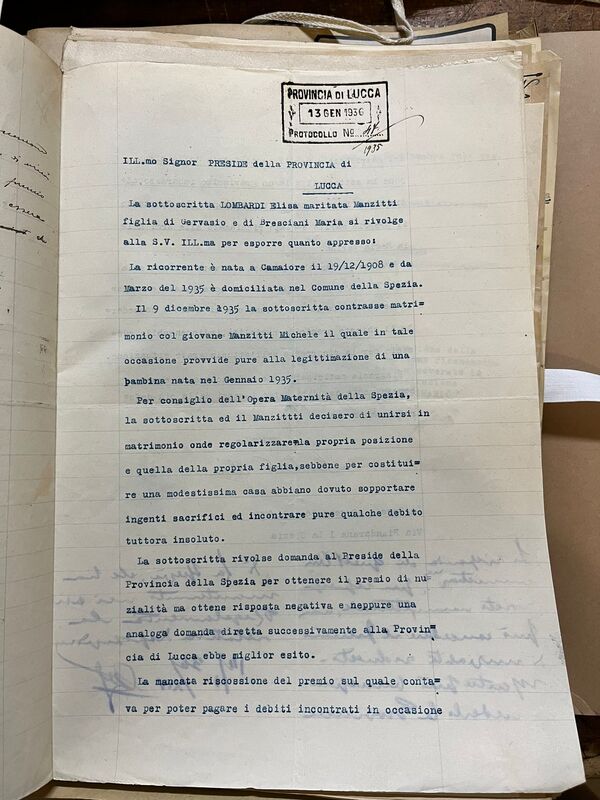 PROVINCIA DI LUCCA
13 GEN 1936
PROTOCOLLO No
1935
ILL.mo Signor PRESIDE della PROVINCIA di
LUCCA
La sottoscritta LOMBARDI Elisa maritata Manzitti
figlia di Gervasio e di Bresciani Maria si rivolge
alla S.V. ILL.ma per esporre quanto appresso:
La ricorrente è nata a Camaiore il 19/12/1908 e da
Marzo del 1935 è domiciliata nel Comune della Spezia.
Il 9 dicembre 1935 la sottoscritta contrasse matri=
monio col giovane Manzitti Michele il quale in tale
occasione provvide pure alla legittimazione di una
bambina nata nel Gennaio 1935.
Per consiglio dell'Opera Maternità della Spezia,
la sottoscritta ed il Manzittti decisero di unirsi in
matrimonio onde regolarizzarela propria posizione
e quella della propria figlia,sebbene per costitui=
re una modestissima casa abbiano dovuto sopportare
ingenti sacrifici ed incontrare pure qualche debito
tuttora insoluto.
La sottoscritta rivolse domanda al Preside della
Provincia della Spezia per ottenere il premio di nu=
zialità ma ottene risposta negativa e neppure una
analoga domanda diretta successivamente alla Provin=
cia di Lucca ebbe miglior esito.
La mancata riscossione del premio sul quale conta=
va per poter pagare i debiti incontrati in occasione